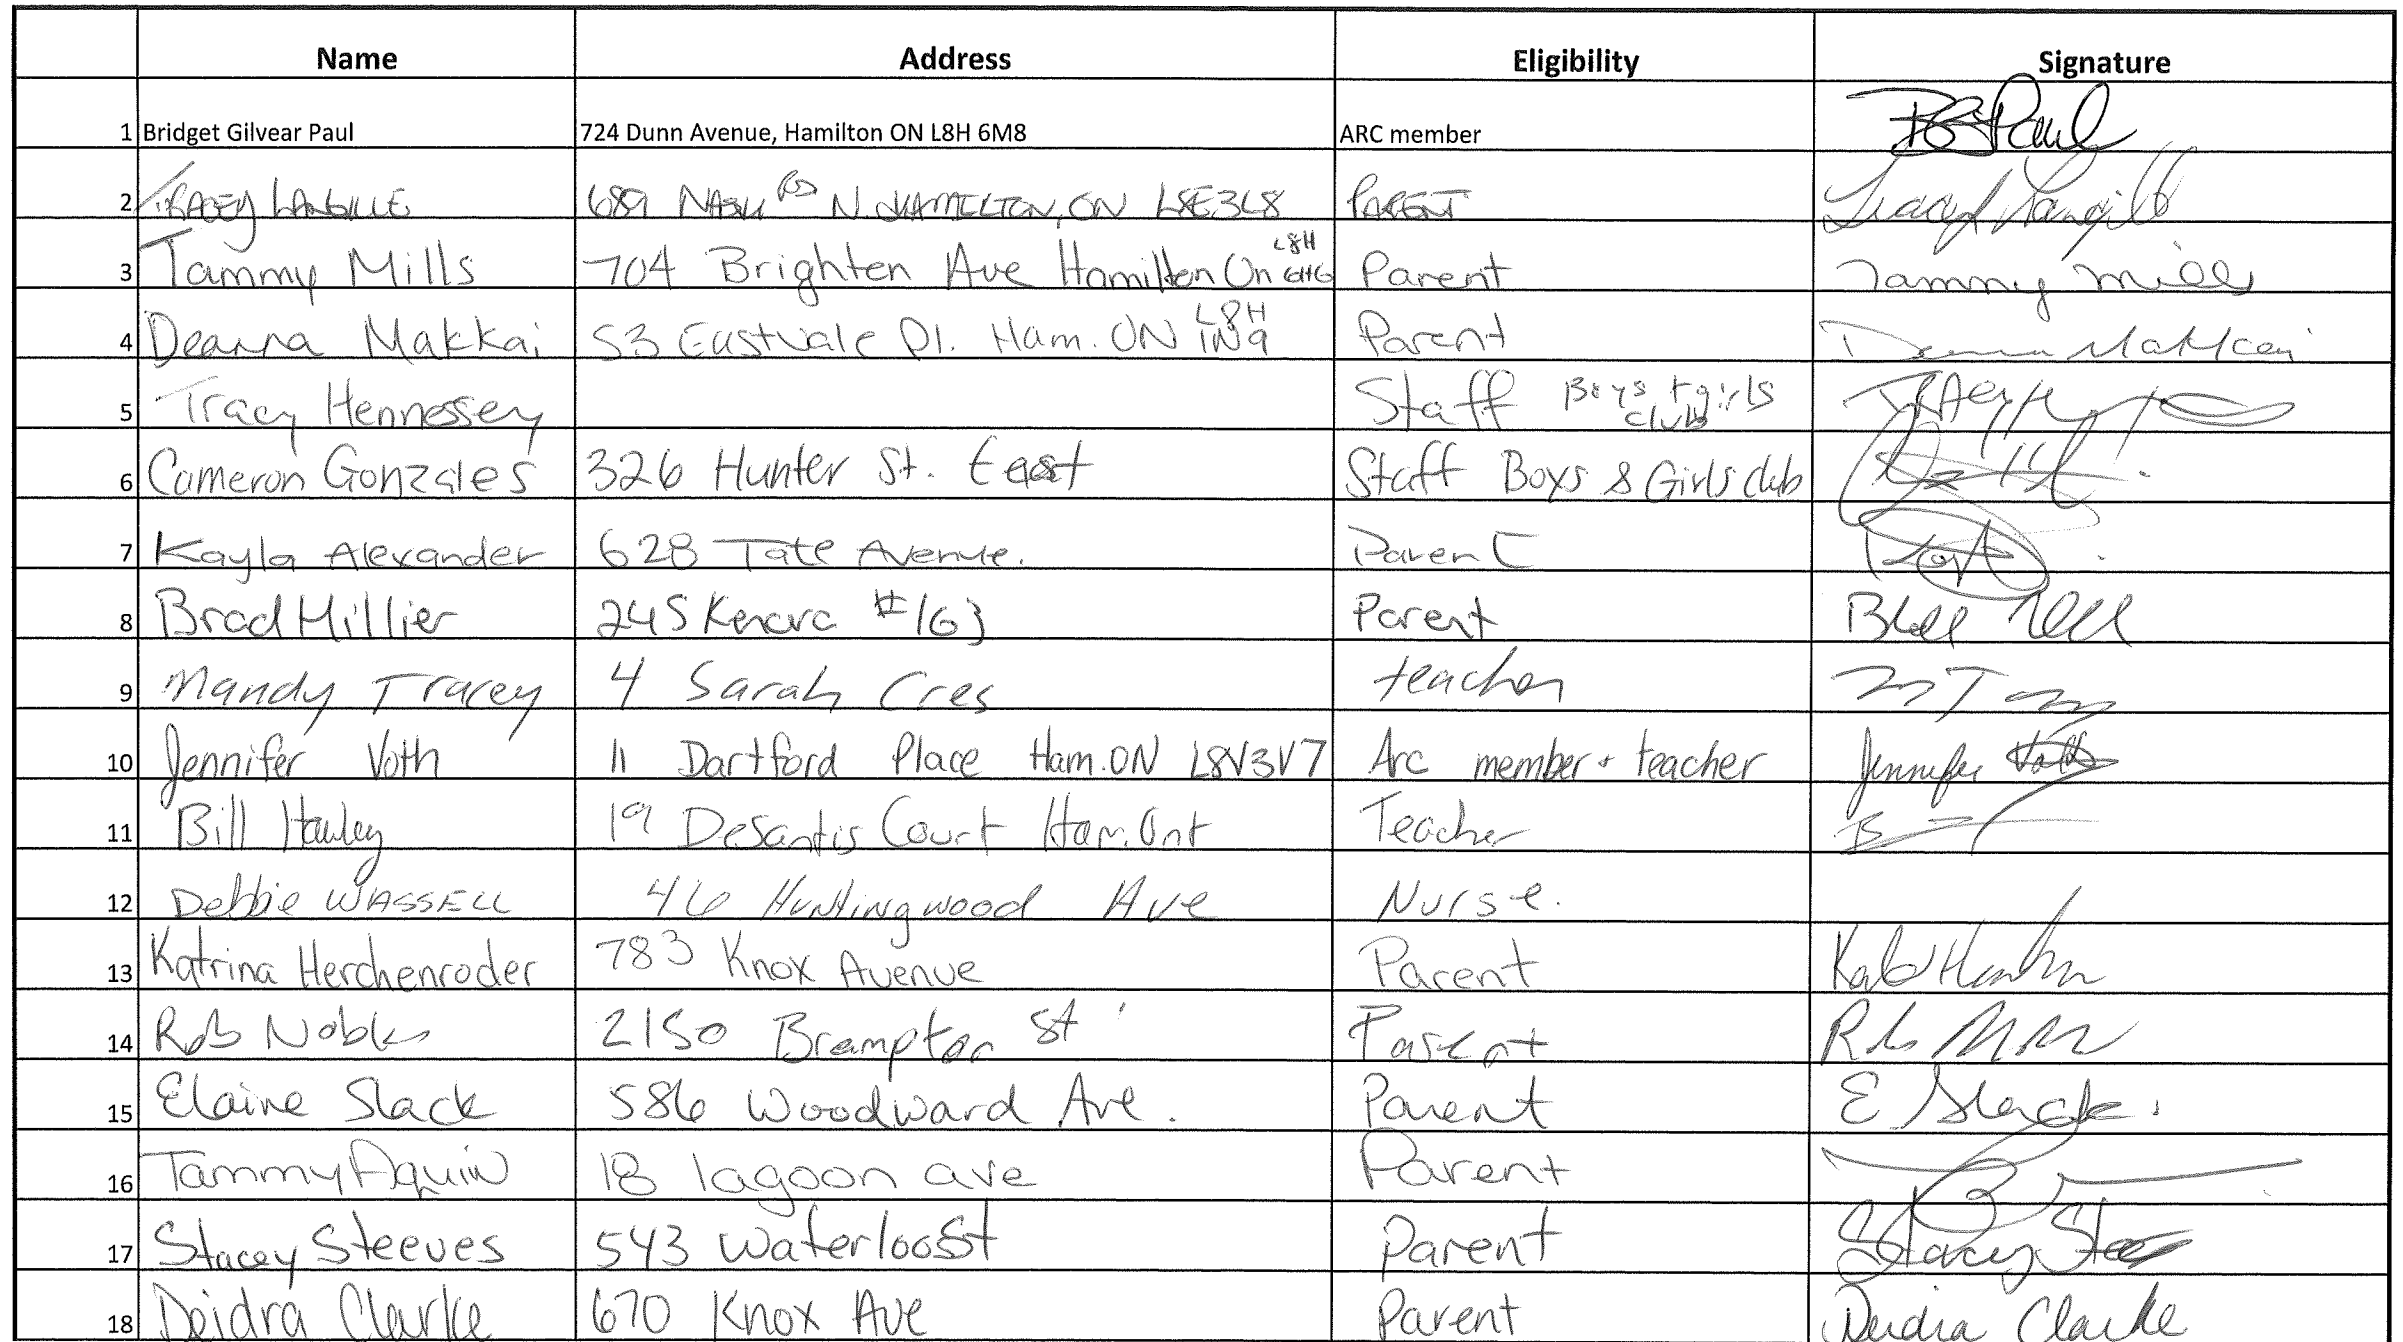 Name Address Eligibility Signature
1 Bridget Gilvear Paul 724 Dunn Avenue, Hamilton ON L8H 6M8 ARC member BG Paul
2 TRACEY LANGILLE 689 NASH RD N. HAMILTON, ON L8E3L8 PARENT Tracey Langille
3 Tammy Mills 704 Brighten Ave Hamilton On L8H 6H6 Parent Tammy Mills
4 Deanna Makkai 53 Eastvale Pl. Ham. ON L8H 1N9 Parent Deanna Makkai
5 Tracy Hennessey Staff Boys & girls club
6 Cameron Gonzales 326 Hunter St. East Staff Boys & Girls club
7 Kayla Alexander 628 Tate Avenue. Parent
8 Brad Hillier 245 Kenora #163 Parent
9 Mandy Tracey 4 Sarah Cres teacher
10 Jennifer Voth 11 Dartford Place Ham. ON L8V3V7 Arc member + teacher Jennifer Voth
11 Bill Hawley 19 DeSantis Court Ham. Ont Teacher
12 Debbie WASSELL 46 Huntingwood Ave Nurse.
13 Katrina Herchenroder 783 Knox Avenue Parent
14 Rob Nobles 2150 Brampton St Parent
15 Elaine Slack 586 Woodward Ave. Parent E Slack.
16 Tammy Aquin 18 lagoon ave Parent
17 Stacey Steeves 543 Waterloo St Parent Stacey
18 Deidra Clarke 670 Knox Ave Parent Deidra Clarke